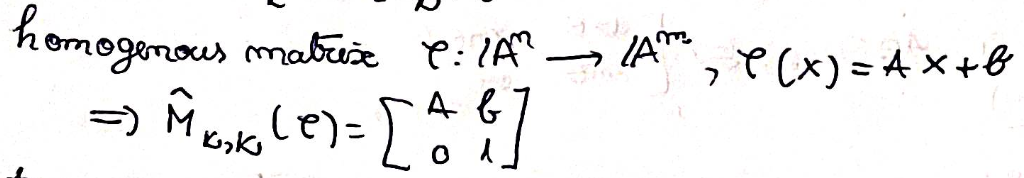 homogenous matrix φ: /Aⁿ → /Aᵐ, φ(x) = A x + b
⇒ M̂ K,K, (φ) = [ A b
0 1 ]